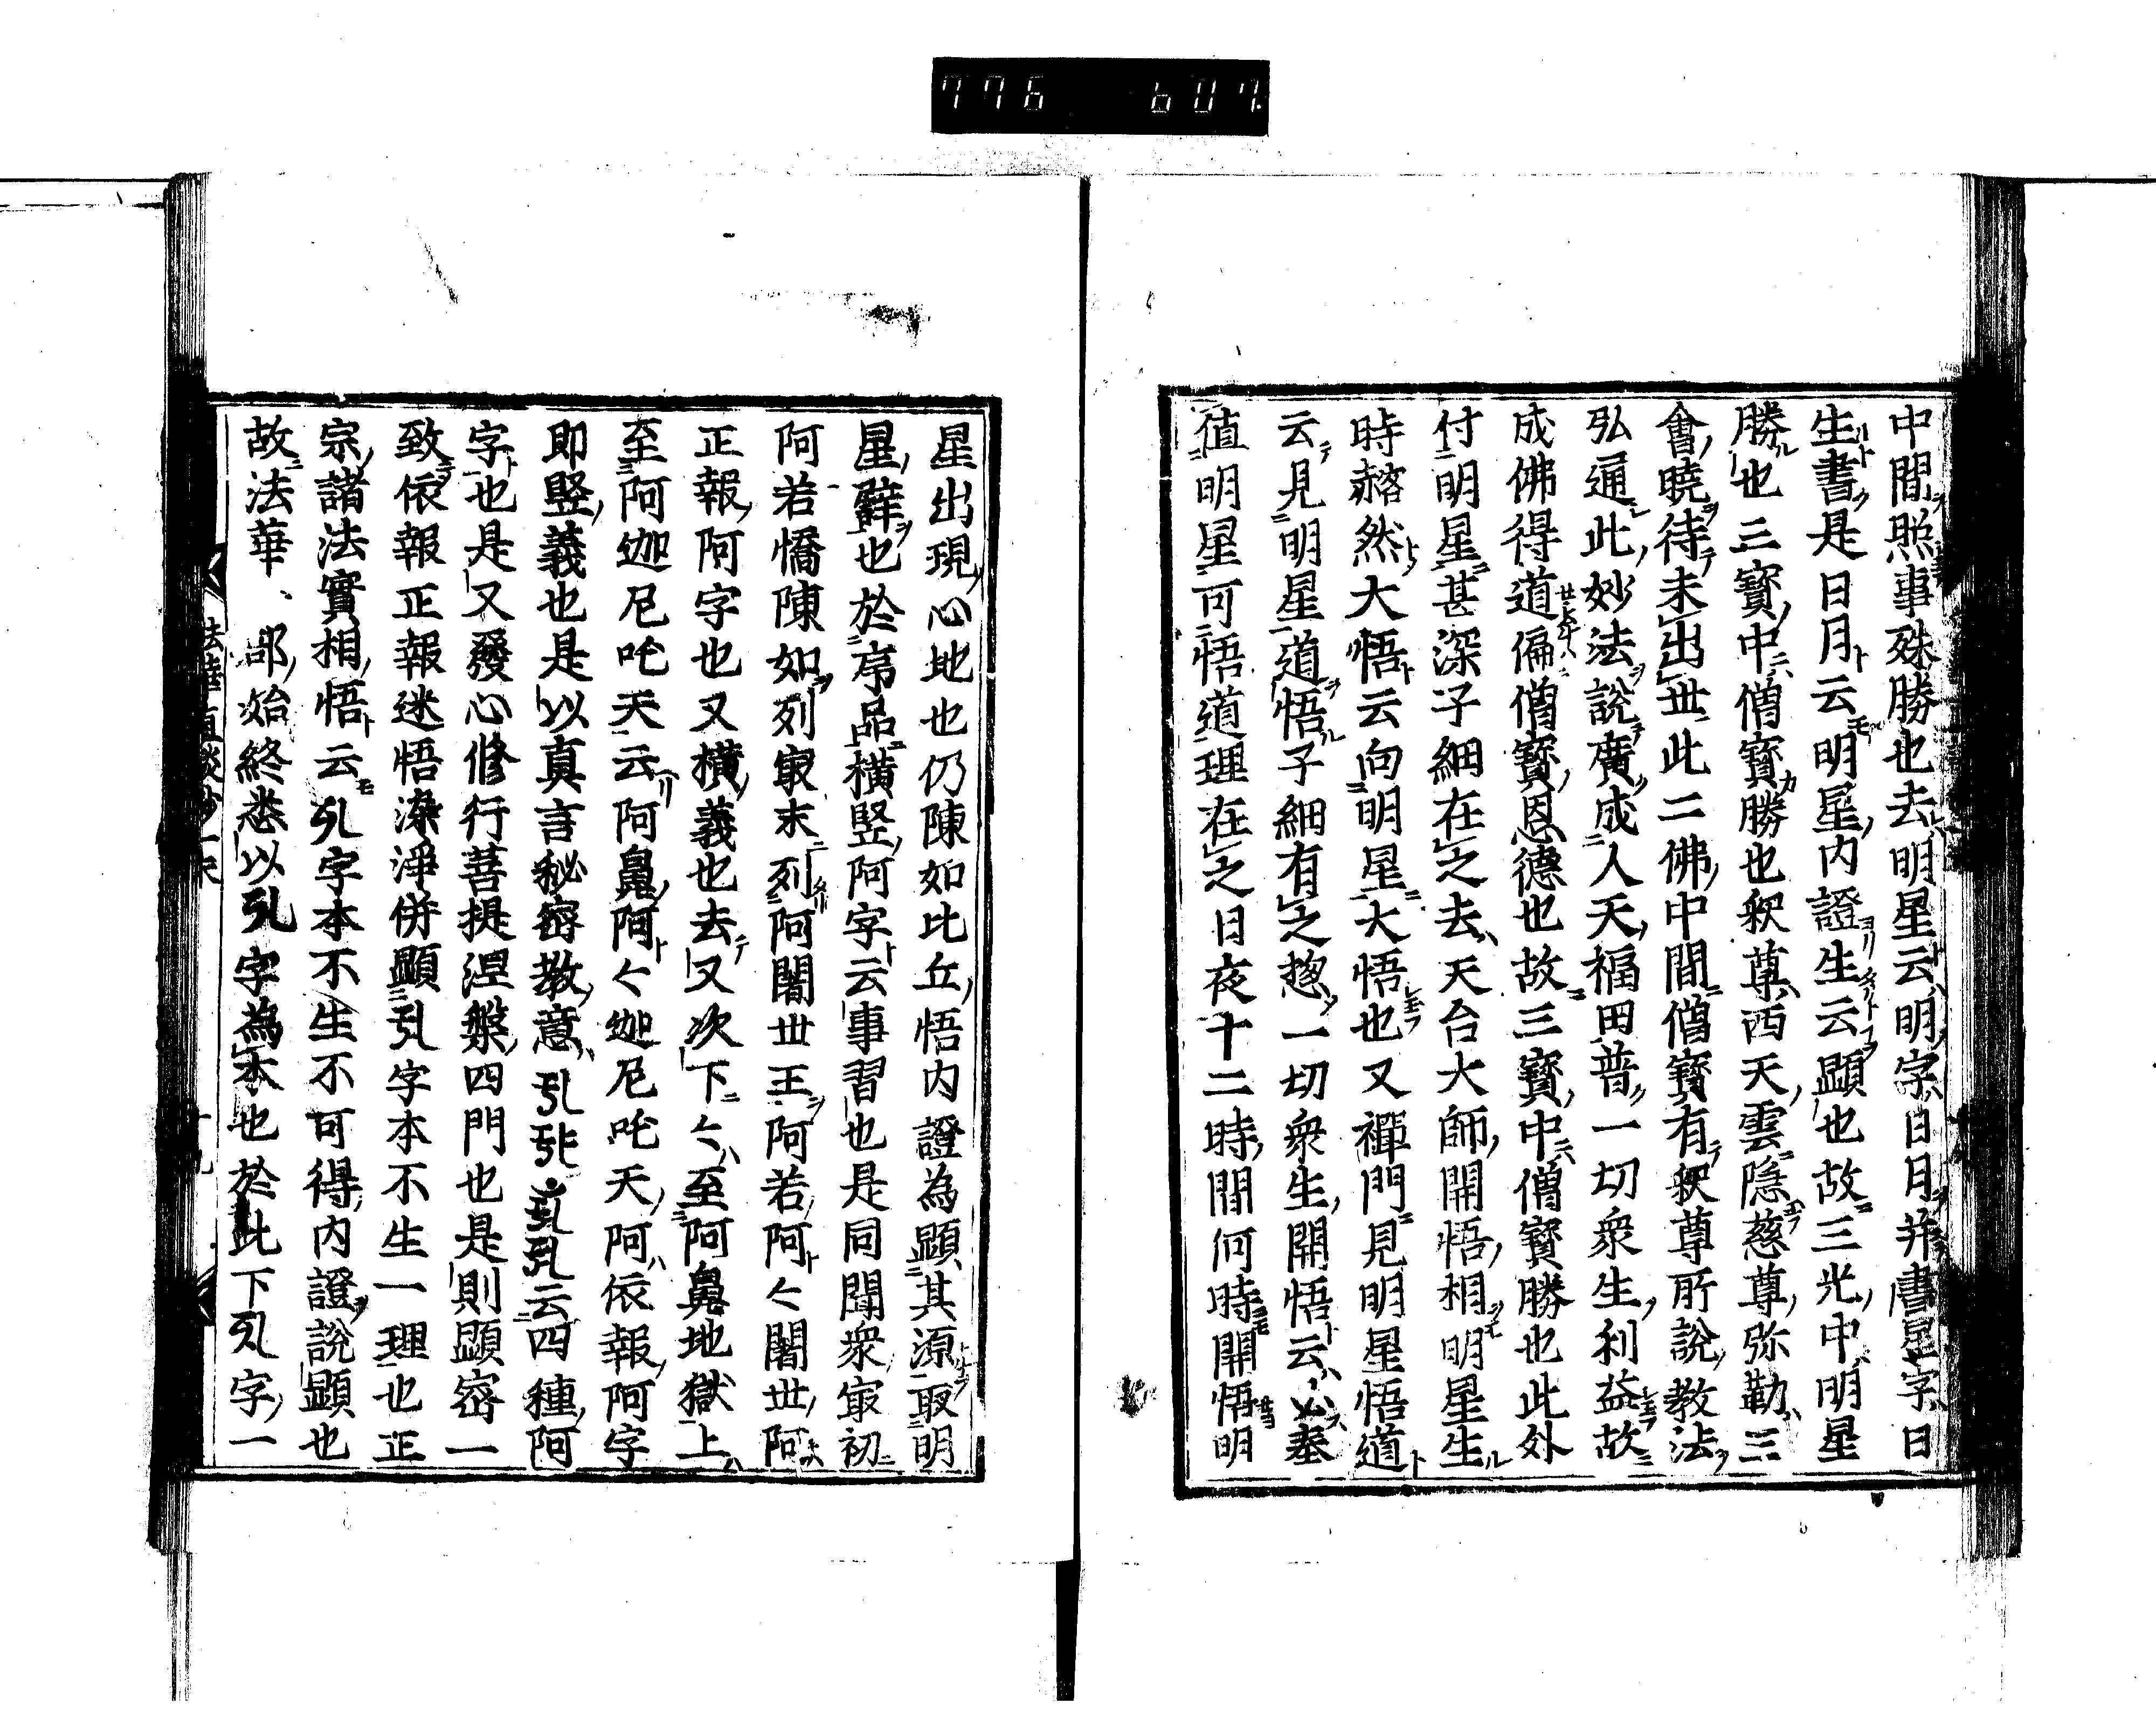 776 607
中間照事殊勝也去明星云明字日月并書星字日
生書是日月云明星内證生云顕也故三光中明星
勝也三寳中僧寳勝也釈尊西天雲隠慈尊弥勒三
會暁待未出世此二佛中間僧寳有釈尊所說教法
弘通此妙法說廣成人天福田普一切衆生利益故
成佛得道偏僧寳恩德也故三寳中僧寳勝也此外
付明星甚深子細在之去天台大師開悟相明星生
時赫然大悟云向明星大悟也又禪門見明星悟道
云見明星道悟子細有之惣一切衆生開悟云必奉
値明星可悟道理在之日夜十二時間何時開悟明
星出現心地也仍陳如比丘悟内證為顕其源取明
星辭也於序品横竪阿字云事習也是同聞衆冣初
阿若憍陳如列冣末列阿闍世王阿若阿々闍世阿
正報阿字也又横義也去又次下々至阿鼻地獄上
至阿迦尼吒天云阿鼻阿々迦尼吒天阿依報阿字
即竪義也是以真言秘密教意 云四種阿
字也是又發心修行菩提涅槃四門也是則顕密一
致依報正報迷悟染淨併顕 字本不生一理也正
宗諸法實相悟云 字本不生不可得内證說顕也
故法華一部始終悉以 字為本也於此下 字一
法華直談鈔一末